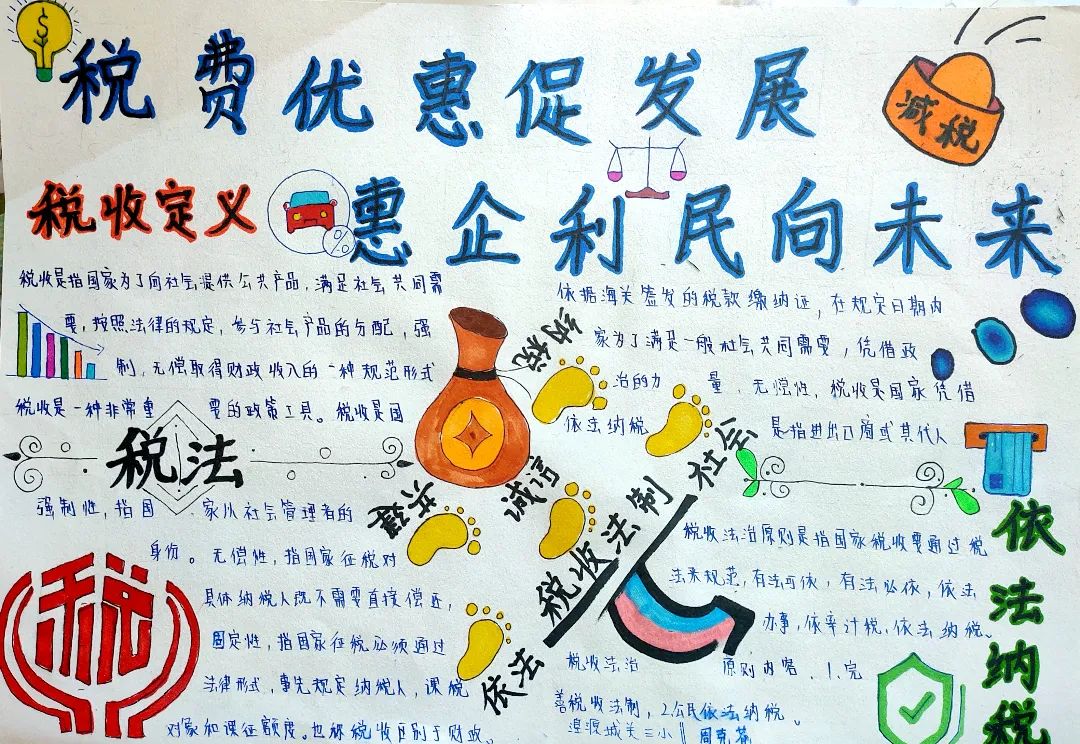 税费优惠促发展
减税
惠企利民向未来
税收定义
税收是指国家为了向社会提供公共产品，满足社会共同需
要，按照法律的规定，参与社会产品的分配，强
制，无偿取得财政收入的一种规范形式
税收是一种非常重要的政策工具。税收是国
税法
强制性，指国家从社会管理者的
身份。无偿性，指国家征税对
具体纳税人既不需要直接偿还，
固定性，指国家征税必须通过
法律形式，事先规定纳税人，课税
对象和课征额度。也称税收区别于财政。
税
依据海关签发的税款缴纳证，在规定日期内
家为了满足一般社会共同需要，凭借政
治的力量，无偿性，税收是国家凭借
依法纳税 是指进出口商或其代人
纳税
共建
诚信
社会
依法
税收法制
税收法治原则是指国家税收要通过税
法来规范，有法可依，有法必依，依法
办事，依率计税，依法纳税。
税收法治原则内容、1.完
善税收法制，2.公民依法纳税。
湟源城关三小
依法纳税